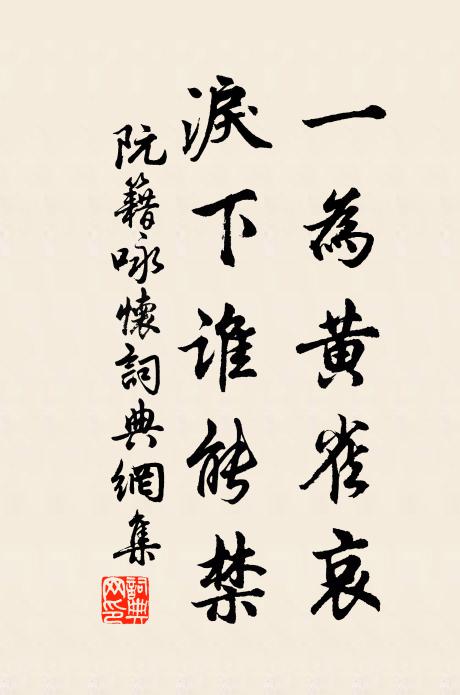 一為黄雀哀
淚下誰能禁
阮籍咏懷詞典網集
詞典网印